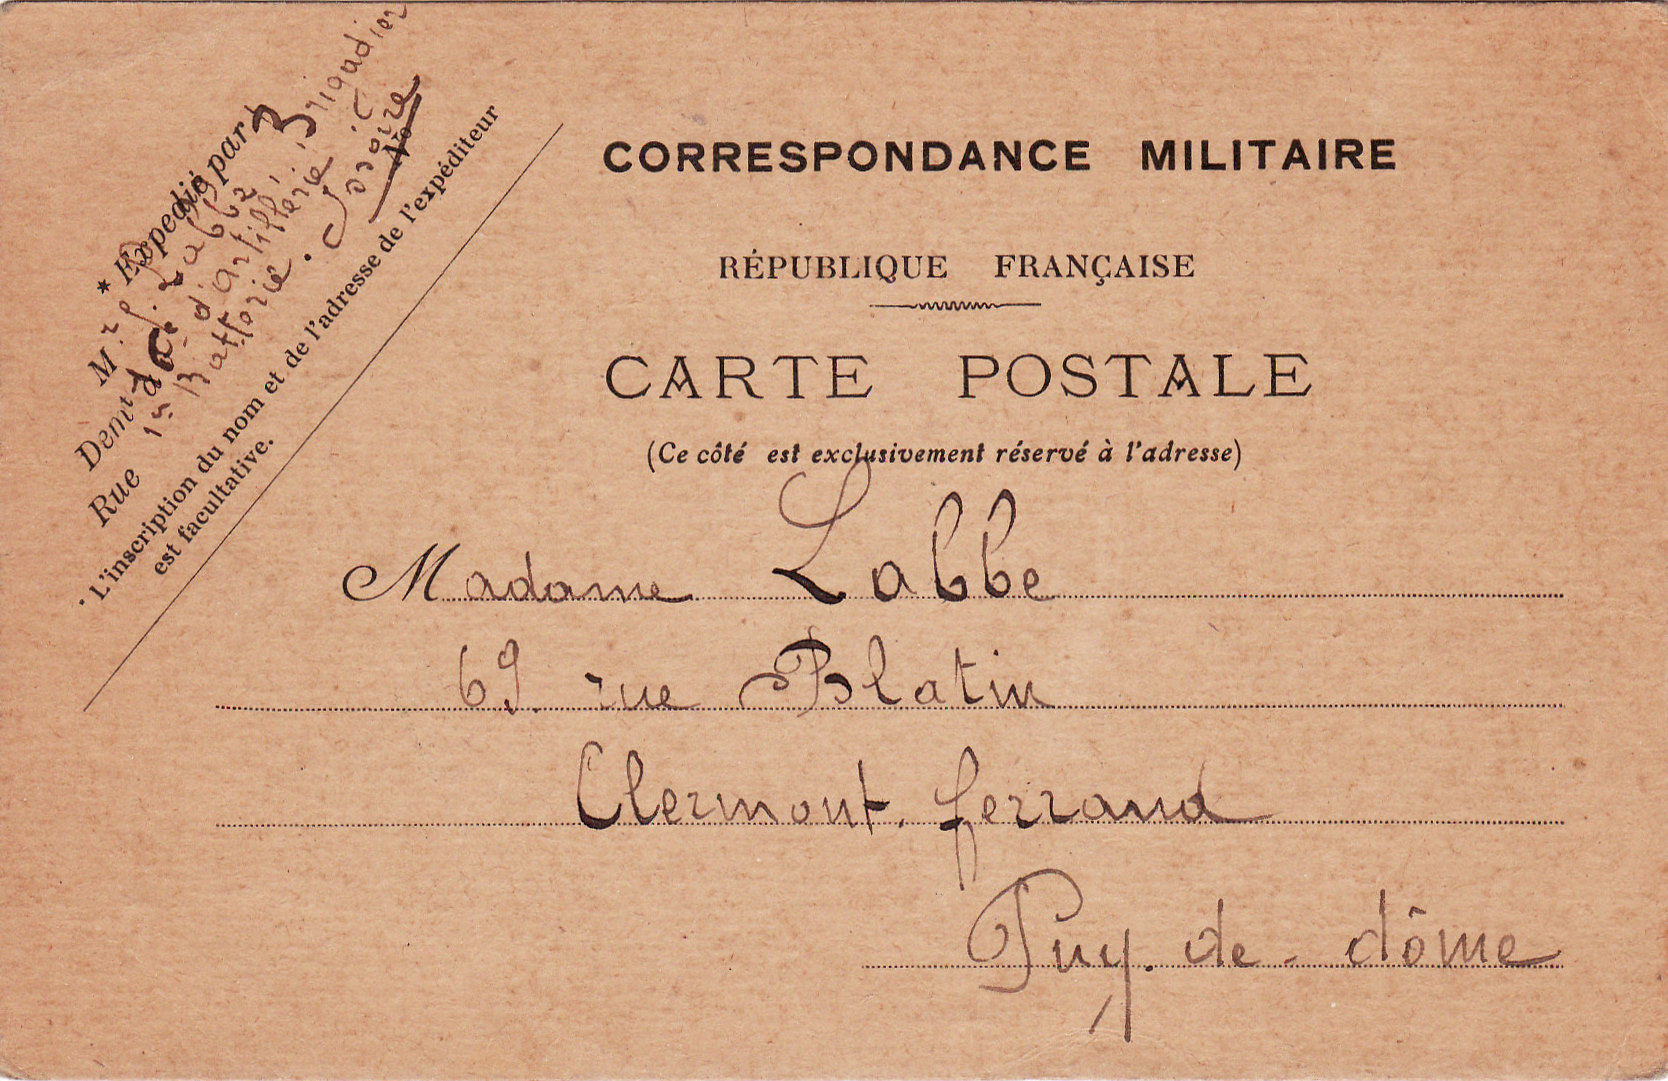 * Expédié par
Brigadier
M.r P. Labbé
d'Artillerie
Demt
Batterie.
Rue
N°
* L'inscription du nom et de l'adresse de l'expéditeur
est facultative.
CORRESPONDANCE MILITAIRE
RÉPUBLIQUE FRANÇAISE
CARTE POSTALE
(Ce côté est exclusivement réservé à l'adresse)
Madame Labbe
69. rue Blatin
Clermont. ferrand
Puy. de - dôme